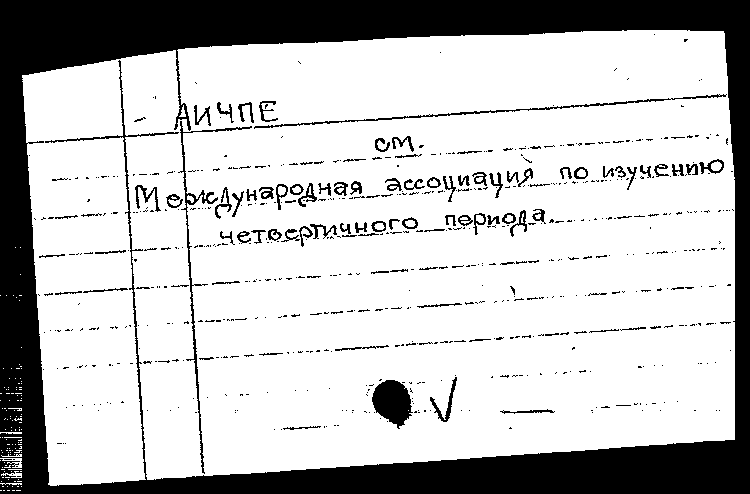 - АИЧПЕ
см.
Международная ассоциация по изучению
четвертичного периода.